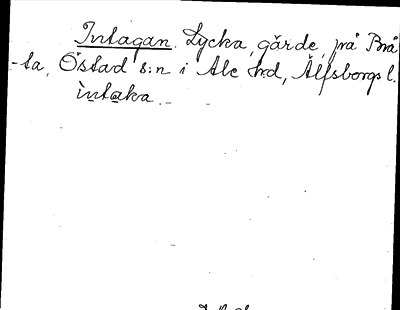 Intagan. Lycka, gärde, på Brå
-ta, Östad s:n i Ale hd, Älfsborgs l.
ìntaka.